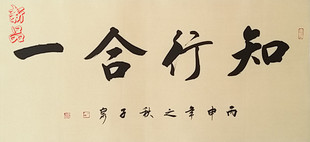 知行合一
丙申年之秋子安
新品